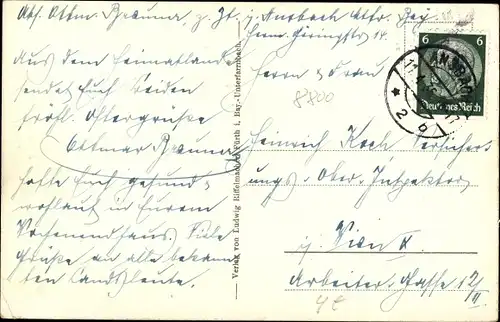 Abs. Ottm. Brauner, z. Zt. Ansbach Mfr. Bay.
Herm. Göringstr. 14.
Aus dem Heimatlande
sendet Euch beiden
fröhl. Ostergrüße
Ottmar Brauner
hoffe Euch gesund
wohlauf in Eurem
Wochenendhaus. Viele
Grüße an alle bekann-
ten Landsleute.
Verlag von Ludwig Riffelmacher, Fürth i. Bay.-Unterfarrnbach.
6 6
Deutsches Reich
ANSBACH
2 b
Herrn u. Frau
8800
Heinrich Koch Versicher
ungs-Ober-Inspektor
Wien X
Arbeiter-Gasse 12/
II